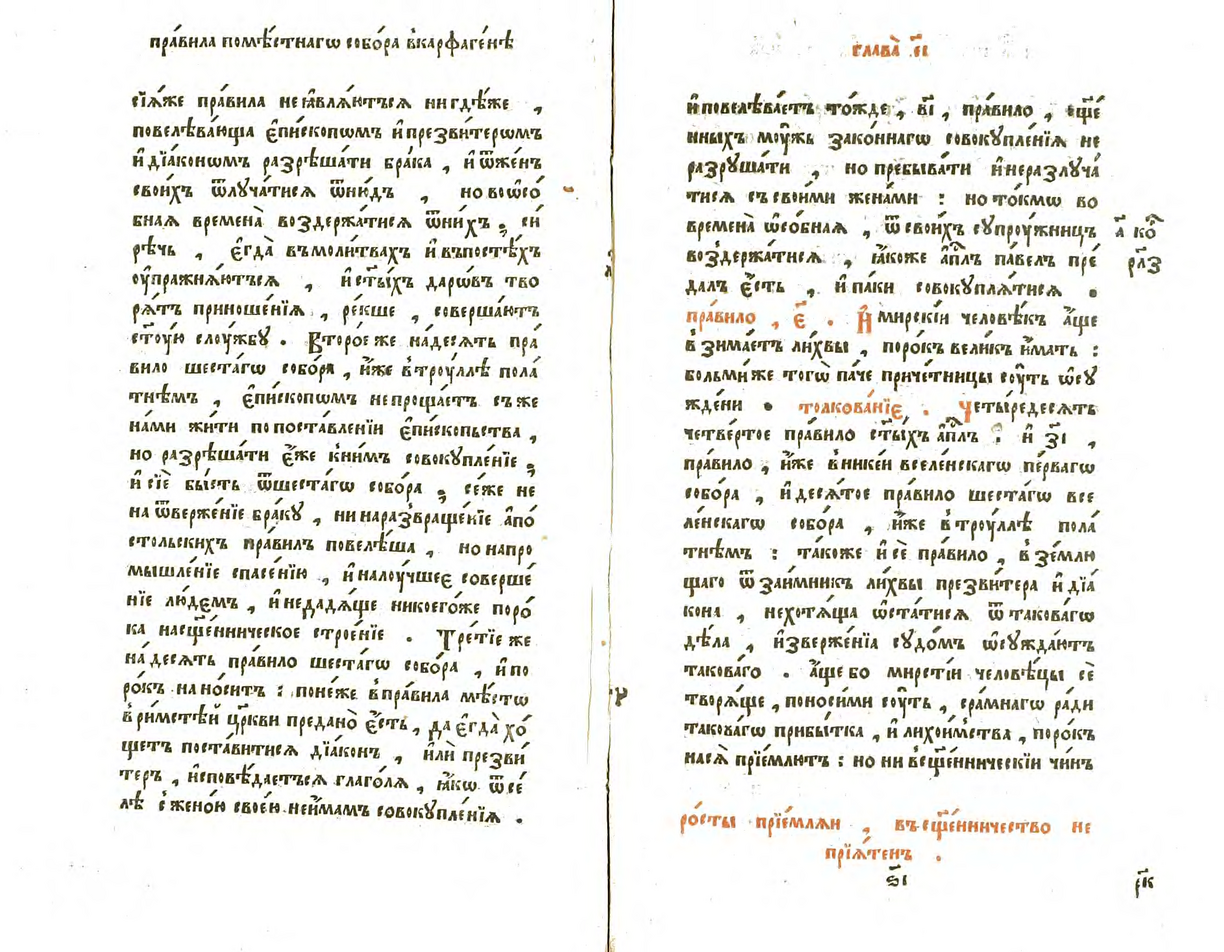 пра́вила помѣ́стнагѡ собо́ра в̾карѳаге́нѣ
сїѧ́же пра́вила неꙗ҆влѧ́ютъсѧ нигдѣ́же ,
повелѣва́юща є҆пи́скопомъ и҆презви́терѡмъ
и҆дїа́конѡмъ разрѣша́ти бра́ка , и҆ѿже́нъ
свои́хъ ѿлуча́тисѧ ѿни́дъ , но воѡ҆со́
бнаѧ времена̀ воздержа́тисѧ ѿни́хъ , си́
рѣчь , є҆гда̀ въмоли́твахъ и҆въпостѣ́хъ
оу҆пражнѧ́ютъсѧ , и҆ст҃ы́хъ даро́въ тво
рѧ́тъ приноше́нїѧ , ре́кше , соверша́ютъ
ст҃у́ю слоу́жбу . Второ́е же на́десѧть пра́
вило шеста́гѡ собо́ра , и҆́же в̾троу́ллѣ пола́
тнѣмъ , є҆пи́скопѡмъ непроща́етъ съже
на́ми жи́ти попоставле́нїи є҆пи́скопьства ,
но разрѣша́ти є҆́же к̾ни́мъ совокупле́нїе ,
и҆ сїѐ бы́сть ѿшеста́гѡ собо́ра , се́же не
на ѿверже́нїе бра́ку , нинаразвраще́нїе а҆по́
стольскихъ пра́вилъ повелѣ́ша , но напро
мышле́нїе спасе́нїю , и҆налоу́чшеє соверше́
нїе лю́демъ , и҆недадѧ́ще никоего́же поро́
ка насщ҃е́нническое строе́нїе . Тре́тїе же
на́десѧть пра́вило шеста́гѡ собо́ра , и҆по
ро́къ нано́ситъ : поне́же в̾пра́вила мѣ́сто
в̾ри́мстѣй цр҃кви предано̀ є҆́сть , да є҆гда̀ хо́
щетъ поста́витисѧ дїа́конъ , и҆лѝ презви́
теръ , и҆сповѣ́даетъсѧ глаго́лѧ , ꙗ҆́кѡ ѿсе́
лѣ с̾жено́ю свое́ю неи҆́мамъ совокупле́нїѧ .
глава̀ є҃і
и҆повелѣва́етъ то́жде , в҃і , пра́вило , сщ҃е́
нныхъ моу́жь зако́ннагѡ совокупле́нїѧ не
разруша́ти , но пребыва́ти и҆неразлуча́
тисѧ съсвои́ми жена́ми : но то́кмѡ во
времена̀ ѡ҆со́бнаѧ , ѿсвои́хъ супроу́жницъ
воздержа́тисѧ , ꙗ҆́коже а҆п҃лъ па́велъ пре́
далъ є҆́сть , и҆ па́ки совокуплѧ́тисѧ .
а҃ ко҇р
рл҃з
пра́вило , є҃ . И҆ мирскі́и человѣ́къ а҆́ще
в̾зима́етъ ли́хвы , поро́къ вели́къ и҆́мать :
бо́льми же тогѡ̀ па́че приче́тницы соу́ть ѡ҆су
жде́ни . толкова́нїе . Четы́редесѧть
четве́ртое пра́вило ст҃ы́хъ а҆п҃лъ : и҆ з҃і ,
пра́вило , и҆́же в̾нике́и вселе́нскагѡ пе́рвагѡ
собо́ра , и҆десѧ́тое пра́вило шеста́гѡ все
ле́нскагѡ собо́ра , и҆́же в̾троу́ллѣ пола́
тнѣмъ : та́коже и҆ сѐ пра́вило , в̾зе́млю
щаго ѿзаи́мникъ ли́хвы презви́тера и҆ дїа́
кона , нехотѧ́ща ѡ҆ста́тисѧ ѿ такова́гѡ
дѣ́ла , и҆зверже́нїа судо́мъ ѡ҆сужда́ютъ
такова́го . а҆́ще бо ми́рстїи человѣ́цы сѐ
творѧ́ще , поноси́ми соу́ть , сра́мнагѡ ра́ди
такова́гѡ прибы́тка , и҆ лихои́мства , поро́къ
насѧ̀ прїе́млютъ : но ни в̾сщ҃е́нническїи чи́нъ
ро́сты прїе́млѧи , въсщ҃е́нничество не
прїѧ́тенъ .
ѕ҃і
р҃к